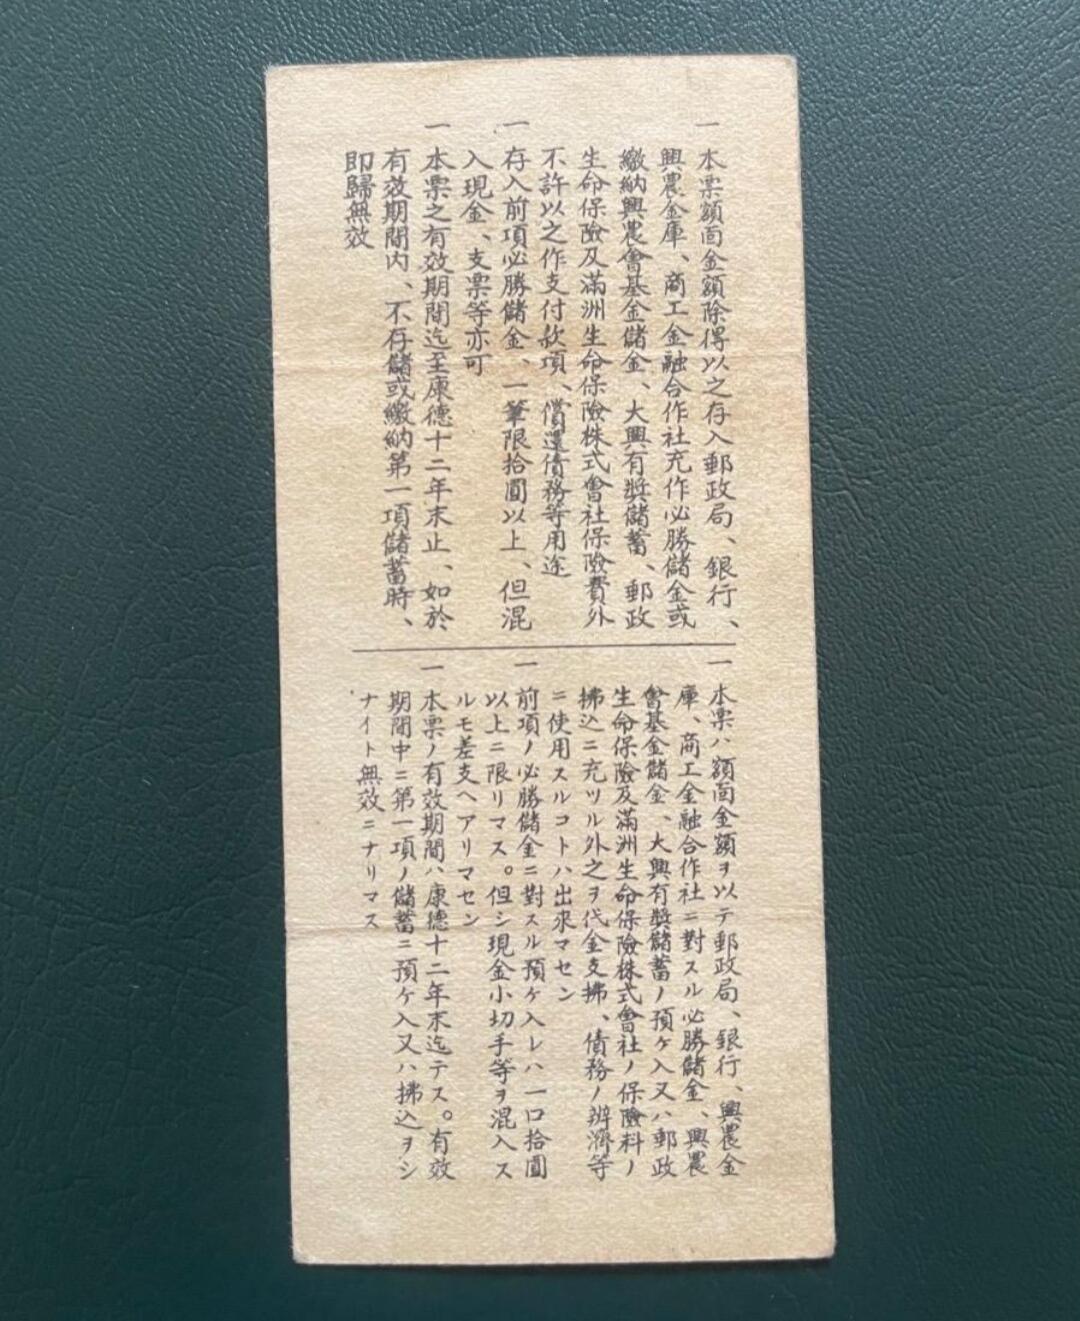 一 本票額面金額除得以之存入郵政局、銀行、
興農金庫、商工金融合作社充作必勝儲金或
繳納興農會基金儲金、大興有奬儲蓄、郵政
生命保險及滿洲生命保險株式會社保險費外
不許以之作支付款項、償還債務等用途
一 存入前項必勝儲金、一筆限拾圓以上、但混
入現金、支票等亦可
一 本票之有效期間迄至康德十二年末止、如於
有效期間內、不存儲或繳納第一項儲蓄時、
即歸無效
一 本票ハ額面金額ヲ以テ郵政局、銀行、興農金
庫、商工金融合作社ニ對スル必勝儲金、興農
會基金儲金、大興有奬儲蓄ノ預ケ入又ハ郵政
生命保險及滿洲生命保險株式會社ノ保險料ノ
拂込ニ充ツル外之ヲ代金支拂、債務ノ辨濟等
ニ使用スルコトハ出來マセン
一 前項ノ必勝儲金ニ對スル預ケ入レハ一口拾圓
以上ニ限リマス。但シ現金小切手等ヲ混入ス
ルモ差支ヘアリマセン
一 本票ノ有效期間ハ康德十二年末迄テス。有效
期間中ニ第一項ノ儲蓄ニ預ケ入又ハ拂込ヲシ
ナイト無效ニナリマス